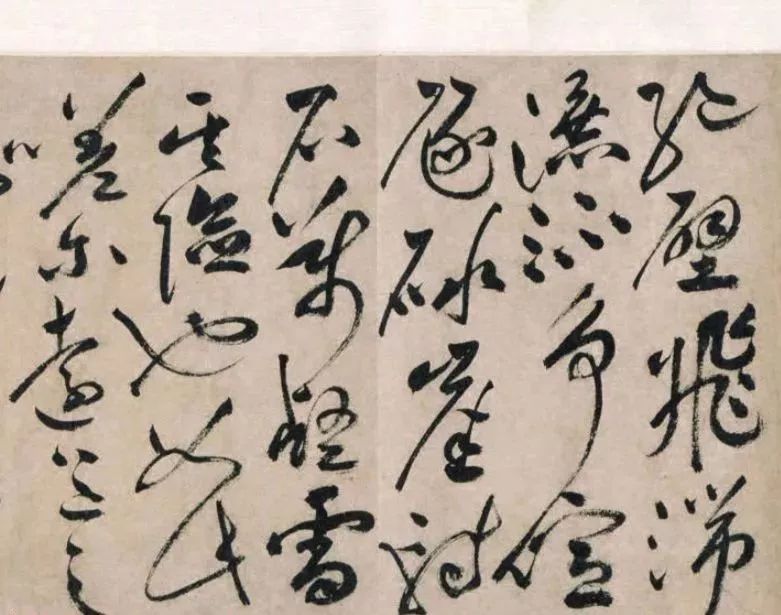 絕壁飛湍
瀑流爭喧
豗砯崖轉
石萬壑雷
其險也如此
嗟尔遠道之